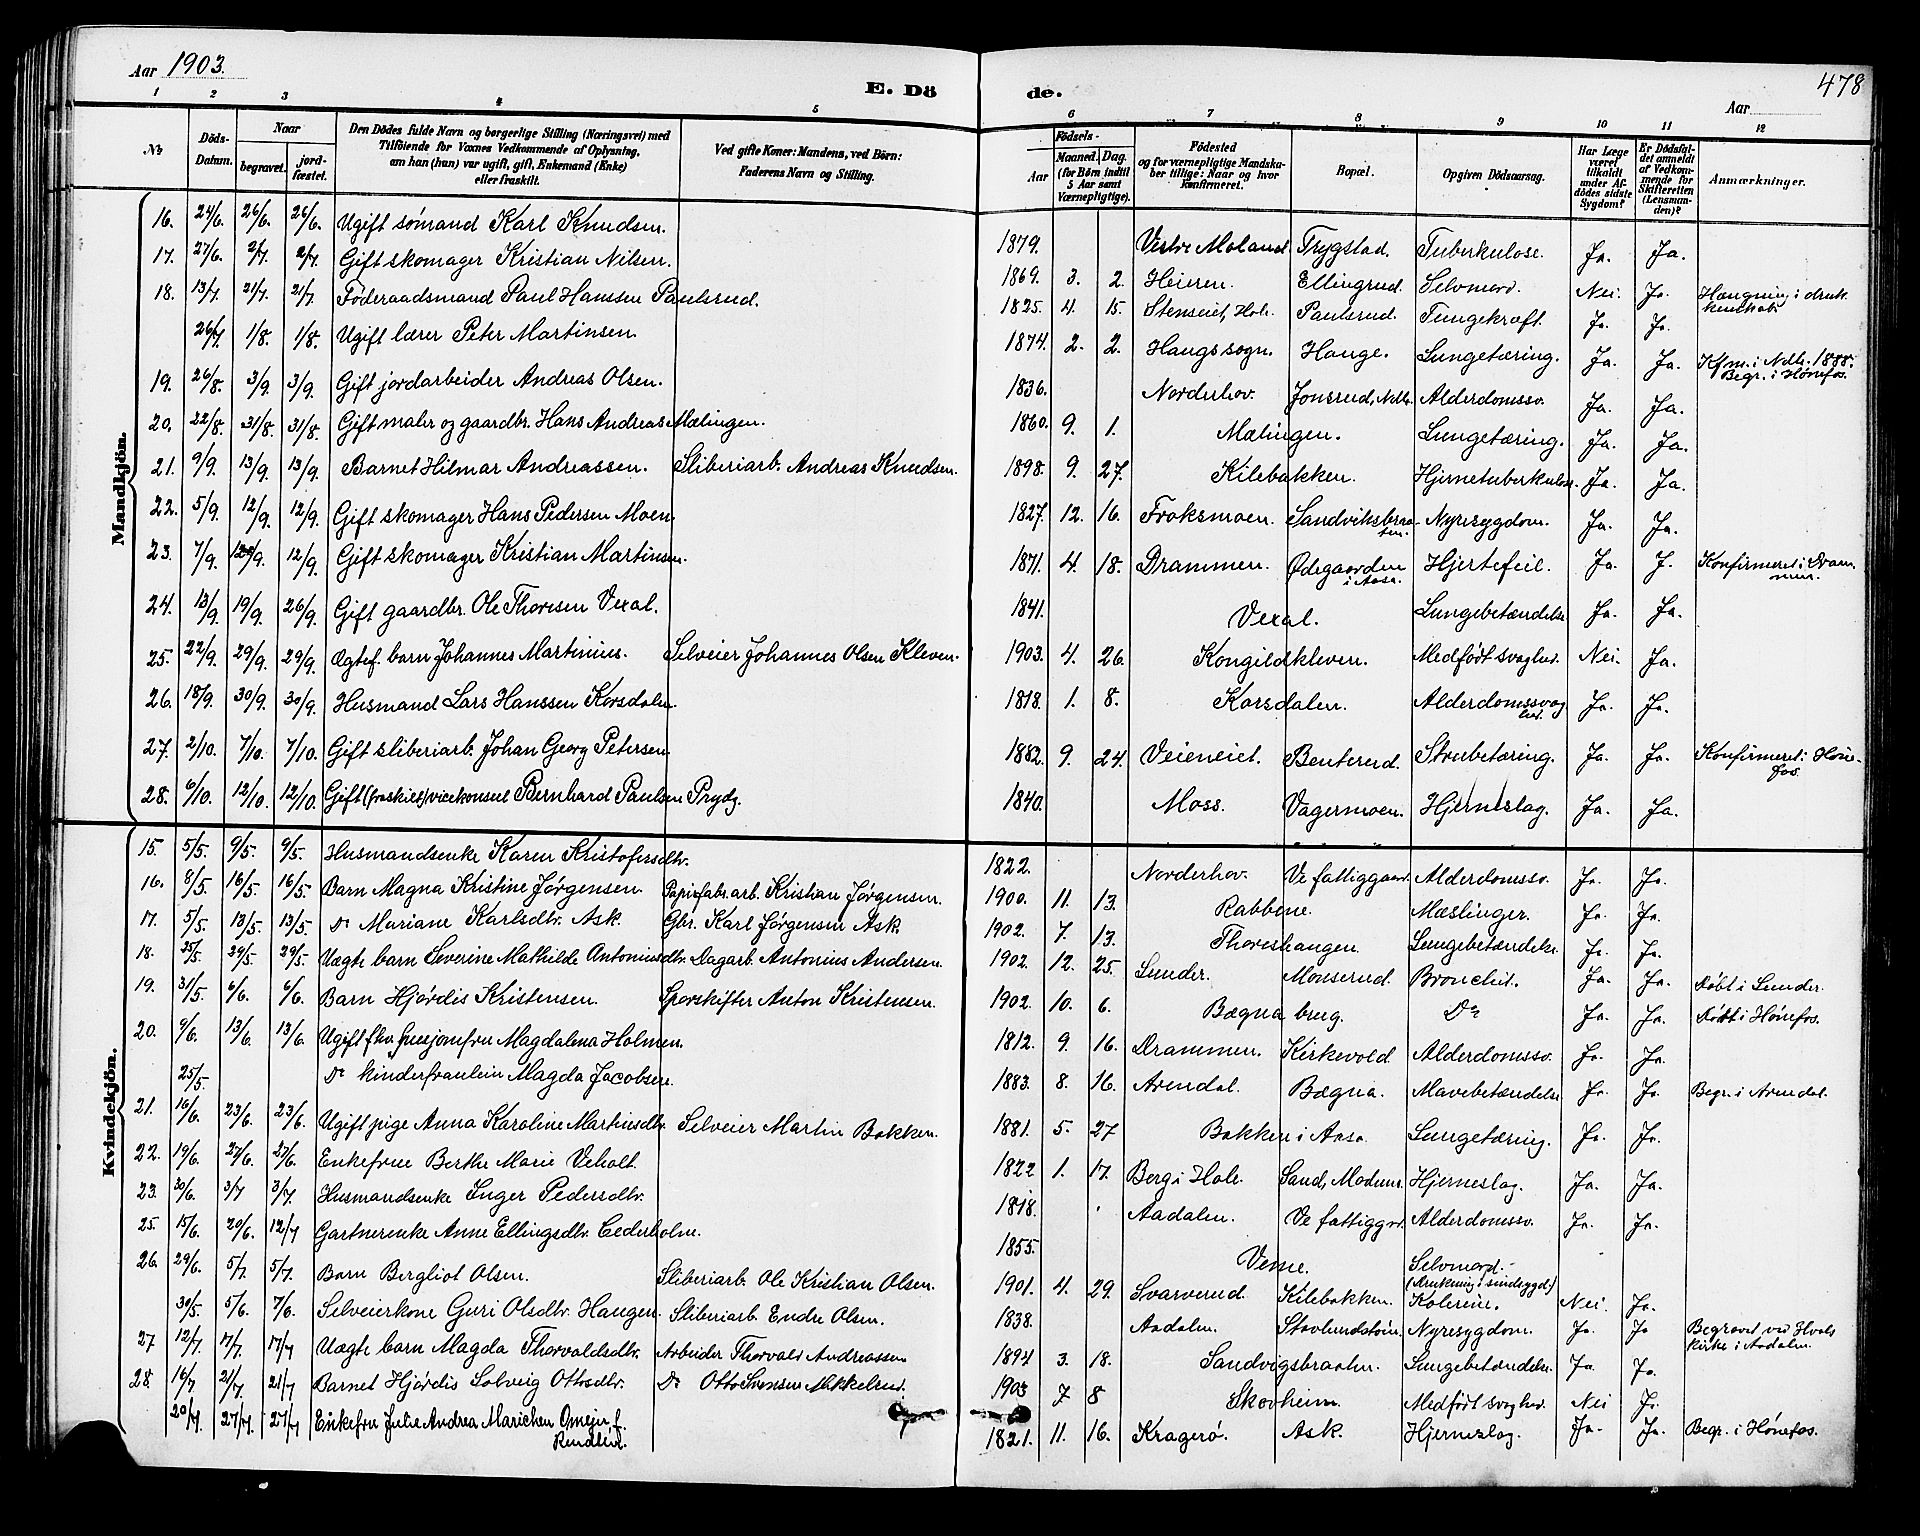 Aar 1903.
E. Dö de.
478
Aar
1 2 3 4 5 6 7 8 9 10 11 12
№
Döds-Datum.
Naar
begravet.
jord-fæstet.
Den Dödes fulde Navn og borgerlige Stilling (Næringsvei) med
Tilföiende for Voxnes Vedkommende af Oplysning,
om han (hun) var ugift, gift, Enkemand (Enke)
eller fraskilt.
Ved gifte Koner: Mandens, ved Börn:
Faderens Navn og Stilling.
Födsels-
Aar
Maaned. Dag.
(for Börn indtil
5 Aar samt
Værnepligtige).
Födested
og for værnepligtige Mandska-
ber tillige: Naar og hvor
konfirmeret.
Bopæl.
Opgiven Dödsaarsag.
Har Læge
været
tilkaldt
under Af-
dödes sidste
Sygdom?
Er Dödsfal-
det anmeldt
af Vedkom-
mende for
Skifteretten
(Lensman-
den)?
Anmærkninger.
Mandkjön.
16. 24/6. 26/6. 26/6. Ugift sømand Karl Knudsen. 1879. Vestre Moland Trygstad. Tuberkulose. Ja. Ja.
17. 27/6. 2/7. 2/7. Gift skomager Kristian Nilsen. 1869. 3. 2. Heieren. Ellingrud. Selvmord. Nei. Ja. Hængning i druk
kenskab.
18. 13/7. 21/7. 21/7. Føderaadsmand Paul Hanssen Paulsrud. 1825. 4. 15. Stenseiet, Hole. Paulsrud. Tungekræft. Ja. Ja.
26/7. 1/8. 1/8. Ugift lærer Peter Martinsen 1874. 2. 2. Haugs sogn. Hauge. Lungetæring. Ja. Ja. Kfm. i Ndh. 1888.
Begr. i Hønefos.
19. 26/8. 3/9. 3/9. Gift jordarbeider Andreas Olsen. 1836. Norderhov. Jonsrud, Ndh. Alderdomssv. Ja. Ja.
20. 22/8. 31/8. 31/8. Gift maler og gaardbr. Hans Andreas Mælingen. 1860. 9. 1. Mælingen. Lungetæring. Ja. Ja.
21. 9/9. 13/9. 13/9. Barnet Hilmar Andreassen. Sliberiarb. Andreas Knudsen. 1898. 9. 27. Kilebakken. Hjernetuberkulose. Ja. Ja.
22. 5/9. 12/9. 12/9. Gift skomager Hans Pedersen Moen. 1827. 12. 16. Froksmoen. Sandviksbraa-
ten. Nyresygdom. Ja. Ja.
23. 7/9. 12/9. 12/9. Gift skomager Kristian Martinsen. 1871. 4. 18. Drammen. Ødegaarden
i Aasa. Hjertefeil. Ja. J. Konfirmeret i Dram-
men.
24. 13/9. 19/9. 26/9. Gift gaardbr. Ole Thoresen Vexal. 1841. Vexal. Lungebetændelse Ja. Ja.
25. 22/9. 29/9. 29/9. Ægtef. barn Johannes Martinius. Selveier Johannes Olsen Kleven. 1903. 4. 26. Kongildkleven. Medfødt svaghed. Nei. Ja.
26. 18/9. 30/9. 30/9. Husmand Lars Hanssen Korsdalen. 1818. 1. 8. Korsdalen. Alderdomssvag
hed. Ja. Ja.
27. 2/10. 7/10. 7/10. Gift sliberiarb. Johan Georg Petersen. 1882. 9. 24. Veieneiet. Benterud. Strubetæring. Ja. Ja. Konfirmeret i Høne-
fos.
28. 6/10. 12/10. 12/10. Gift (fraskilt) vicekonsul Bernhard Paulsen Prydz. 1840. Moss. Vagermoen. Hjerneslag. Ja. Ja.
Kvindekjön.
15. 5/5. 9/5. 9/5. Husmandsenke Karen Kristofersdtr. 1822. Norderhov. Ve fattiggaard. Alderdomssv. Ja. Ja.
16. 8/5. 16/5. 16/5. Barn Magna Kristine Jørgensen. Papirfabr.arb. Kristian Jørgensen. 1900. 11. 13. Rabbene. Mæslinger. Ja. Ja.
17. 5/5. 13/5. 13/5. Do Mariane Karlsdtr. Ask. Gbr. Karl Jørgensen Ask. 1902. 7. 13. Thoreshaugen. Lungebetændelse Ja. Ja.
18. 25/5. 29/5. 29/5. Uægte barn Severine Mathilde Antoniusdtr. Dagarb. Antonius Andersen. 1902. 12. 25. Lunder. Monserud. Bronchit. Ja. Ja. Døbt i Lunder.
19. 31/5. 6/6. 6/6. Barn Hjørdis Kristensen. Sporskifter Anton Kristensen. 1902. 10. 6. Bægna brug. Do Ja. Ja. Døbt i Hønefos.
20. 9/6. 13/6. 13/6. Ugift fhv. husjomfru Magdalena Holmen. 1812. 9. 16. Drammen. Kirkevold. Alderdomssv. Ja. Ja.
25/5. Do kinderfraulein Magda Jacobsen. 1883. 8. 16. Arendal. Bægna. Mavebetændelse Ja. Ja. Begr. i Arendal.
21. 16/6. 23/6. 23/6. Ugift pige Anna Karoline Martinsdtr. Selveier Martin Bakken. 1881. 5. 27 Bakken i Aasa. Lungetæring. Ja. Ja.
22. 19/6. 27/6. 27/6. Enkefrue Berthe Marie Veholt. 1822. 1. 17. Berg i Hole. Sand, Modum. Hjerneslag. Ja. Ja.
23. 30/6. 3/7 3/7. Husmandsenke Inger Pedersdtr. 1818. Aadalen. Ve fattiggrd. Alderdomssv. Ja. Ja.
25. 15/6. 20/6. 12/7 Gartnerenke Anne Ellingsdtr. Cederholm. 1855. Veme. Selvmord.
(drukning i sindsygd)
26. 29/6. 5/7. 5/7. Barn Bergliot Olsen. Sliberiarb. Ole Kristian Olsen. 1901. 4. 29. Svarverud. Kilebakken. Kolerine. Nei. Ja.
30/5. 5/6. 7/6. Selveierkone Guri Olsdtr. Haugen. Sliberiarb. Endre Olsen. 1838. Aadalen. Nyresygdom. Ja. Ja Begravet ved Hvals
kirke i Aadalen.
27 12/7. 17/7. 17/7 Uægte barn Magda Thorvaldsdtr. Arbeider Thorvald Andreassen 1894 3. 18. Sandvigsbraaten. Lungebetændelse. Ja. Ja.
28. 16/7 21/7. 21/7 Barnet Hjørdis Solveig Ottosdtr. Do Otto Svensen Mikkelrud. 1903 7 8 Skovheim. Medfødt svaghed. Nei Ja.
20/7. 27/7. 27/7 Enkefru Julie Andrea Marichen Omejer f.
1821. 11. 16. Kragerø. Ask. Hjerneslag. Ja. Ja. Begr. i Hønefos.